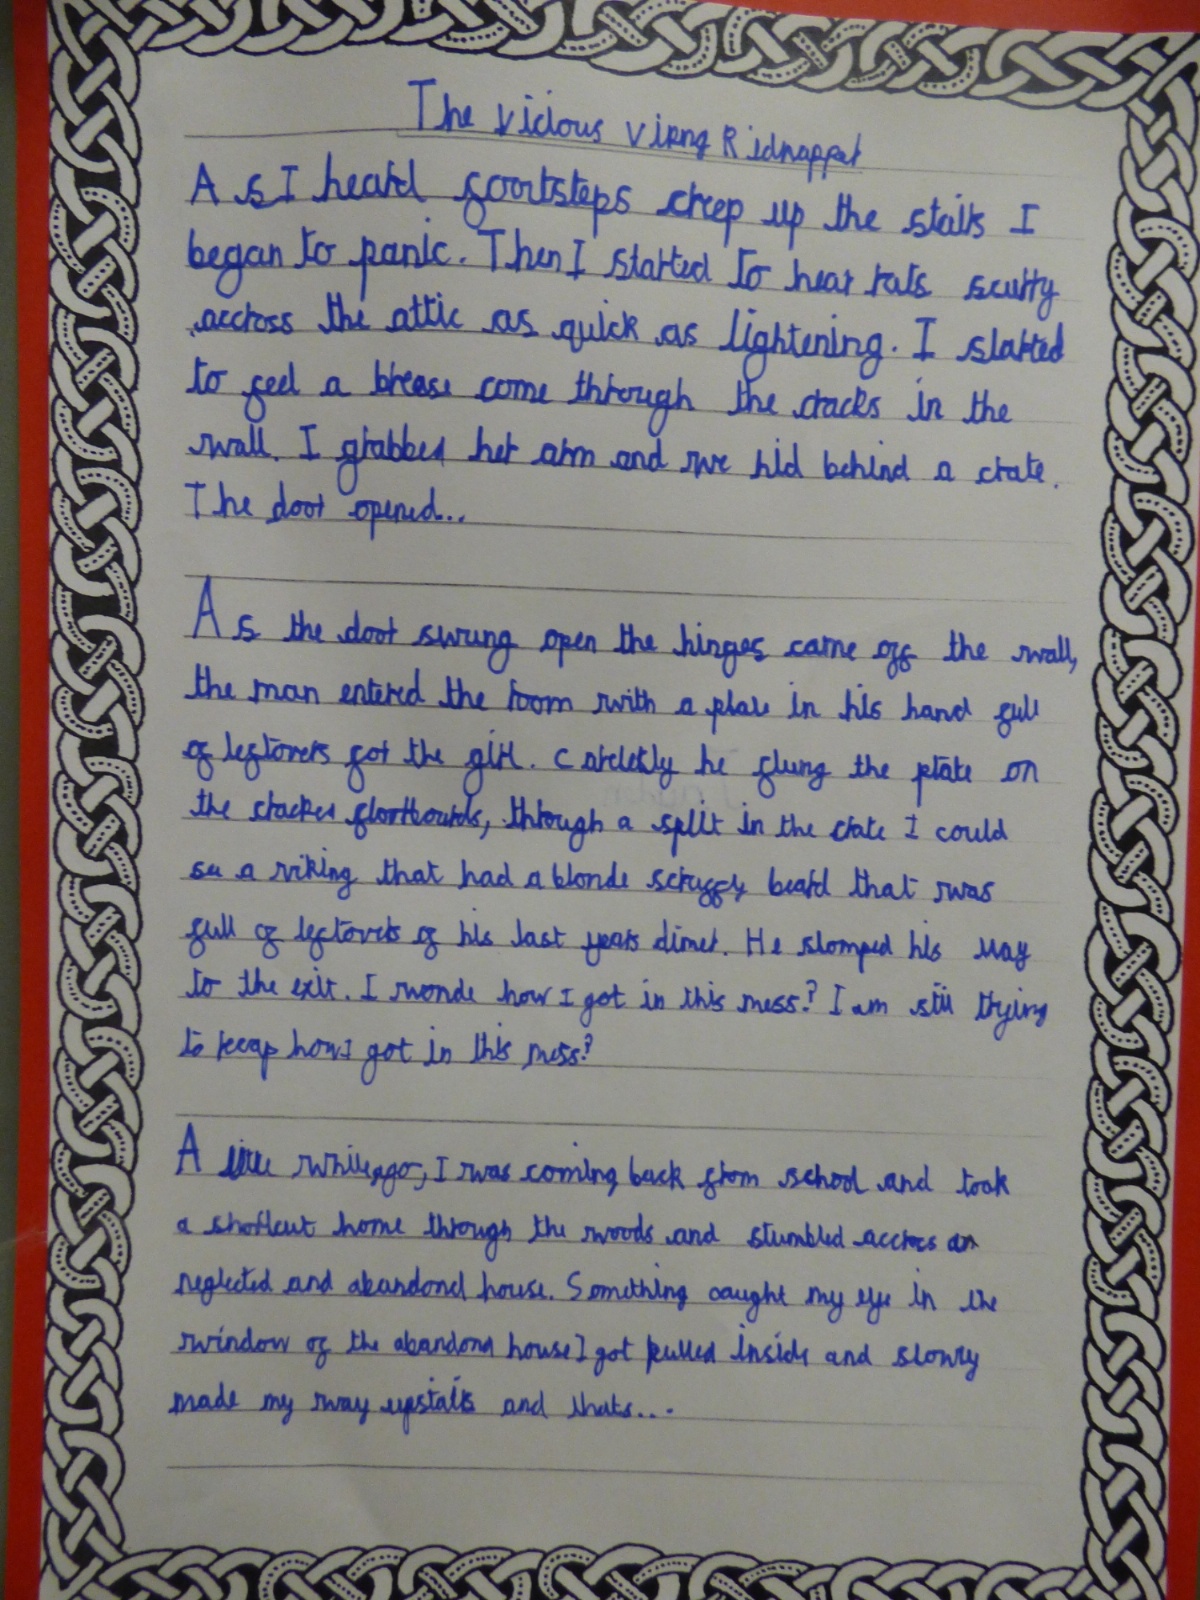 The Vicious Viking Kidnapper
As I heard footsteps creep up the stairs I
began to panic. Then I started to hear rats scurry
accross the attic as quick as lightening. I started
to feel a brease come through the cracks in the
wall. I grabbed her arm and we hid behind a crate.
The door opened...
As the door swung open the hinges came off the wall,
the man entered the room with a plate in his hand full
of leftovers for the girl. Carlesly he flung the plate on
the cracked floorboards, through a split in the crate I could
see a viking that had a blonde scruffy beard that was
full of leftovers of his last years diner. He stomped his way
to the exit. I wonde how I got in this mess? I am still trying
to recap how I got in this mess?
A little while ago, I was coming back from school and took
a shortcut home through the woods and stumbled accross an
neglected and abandond house. Something caught my eye in the
window of the abandond house I got pulled inside and slowly
made my way upstairs and thats....